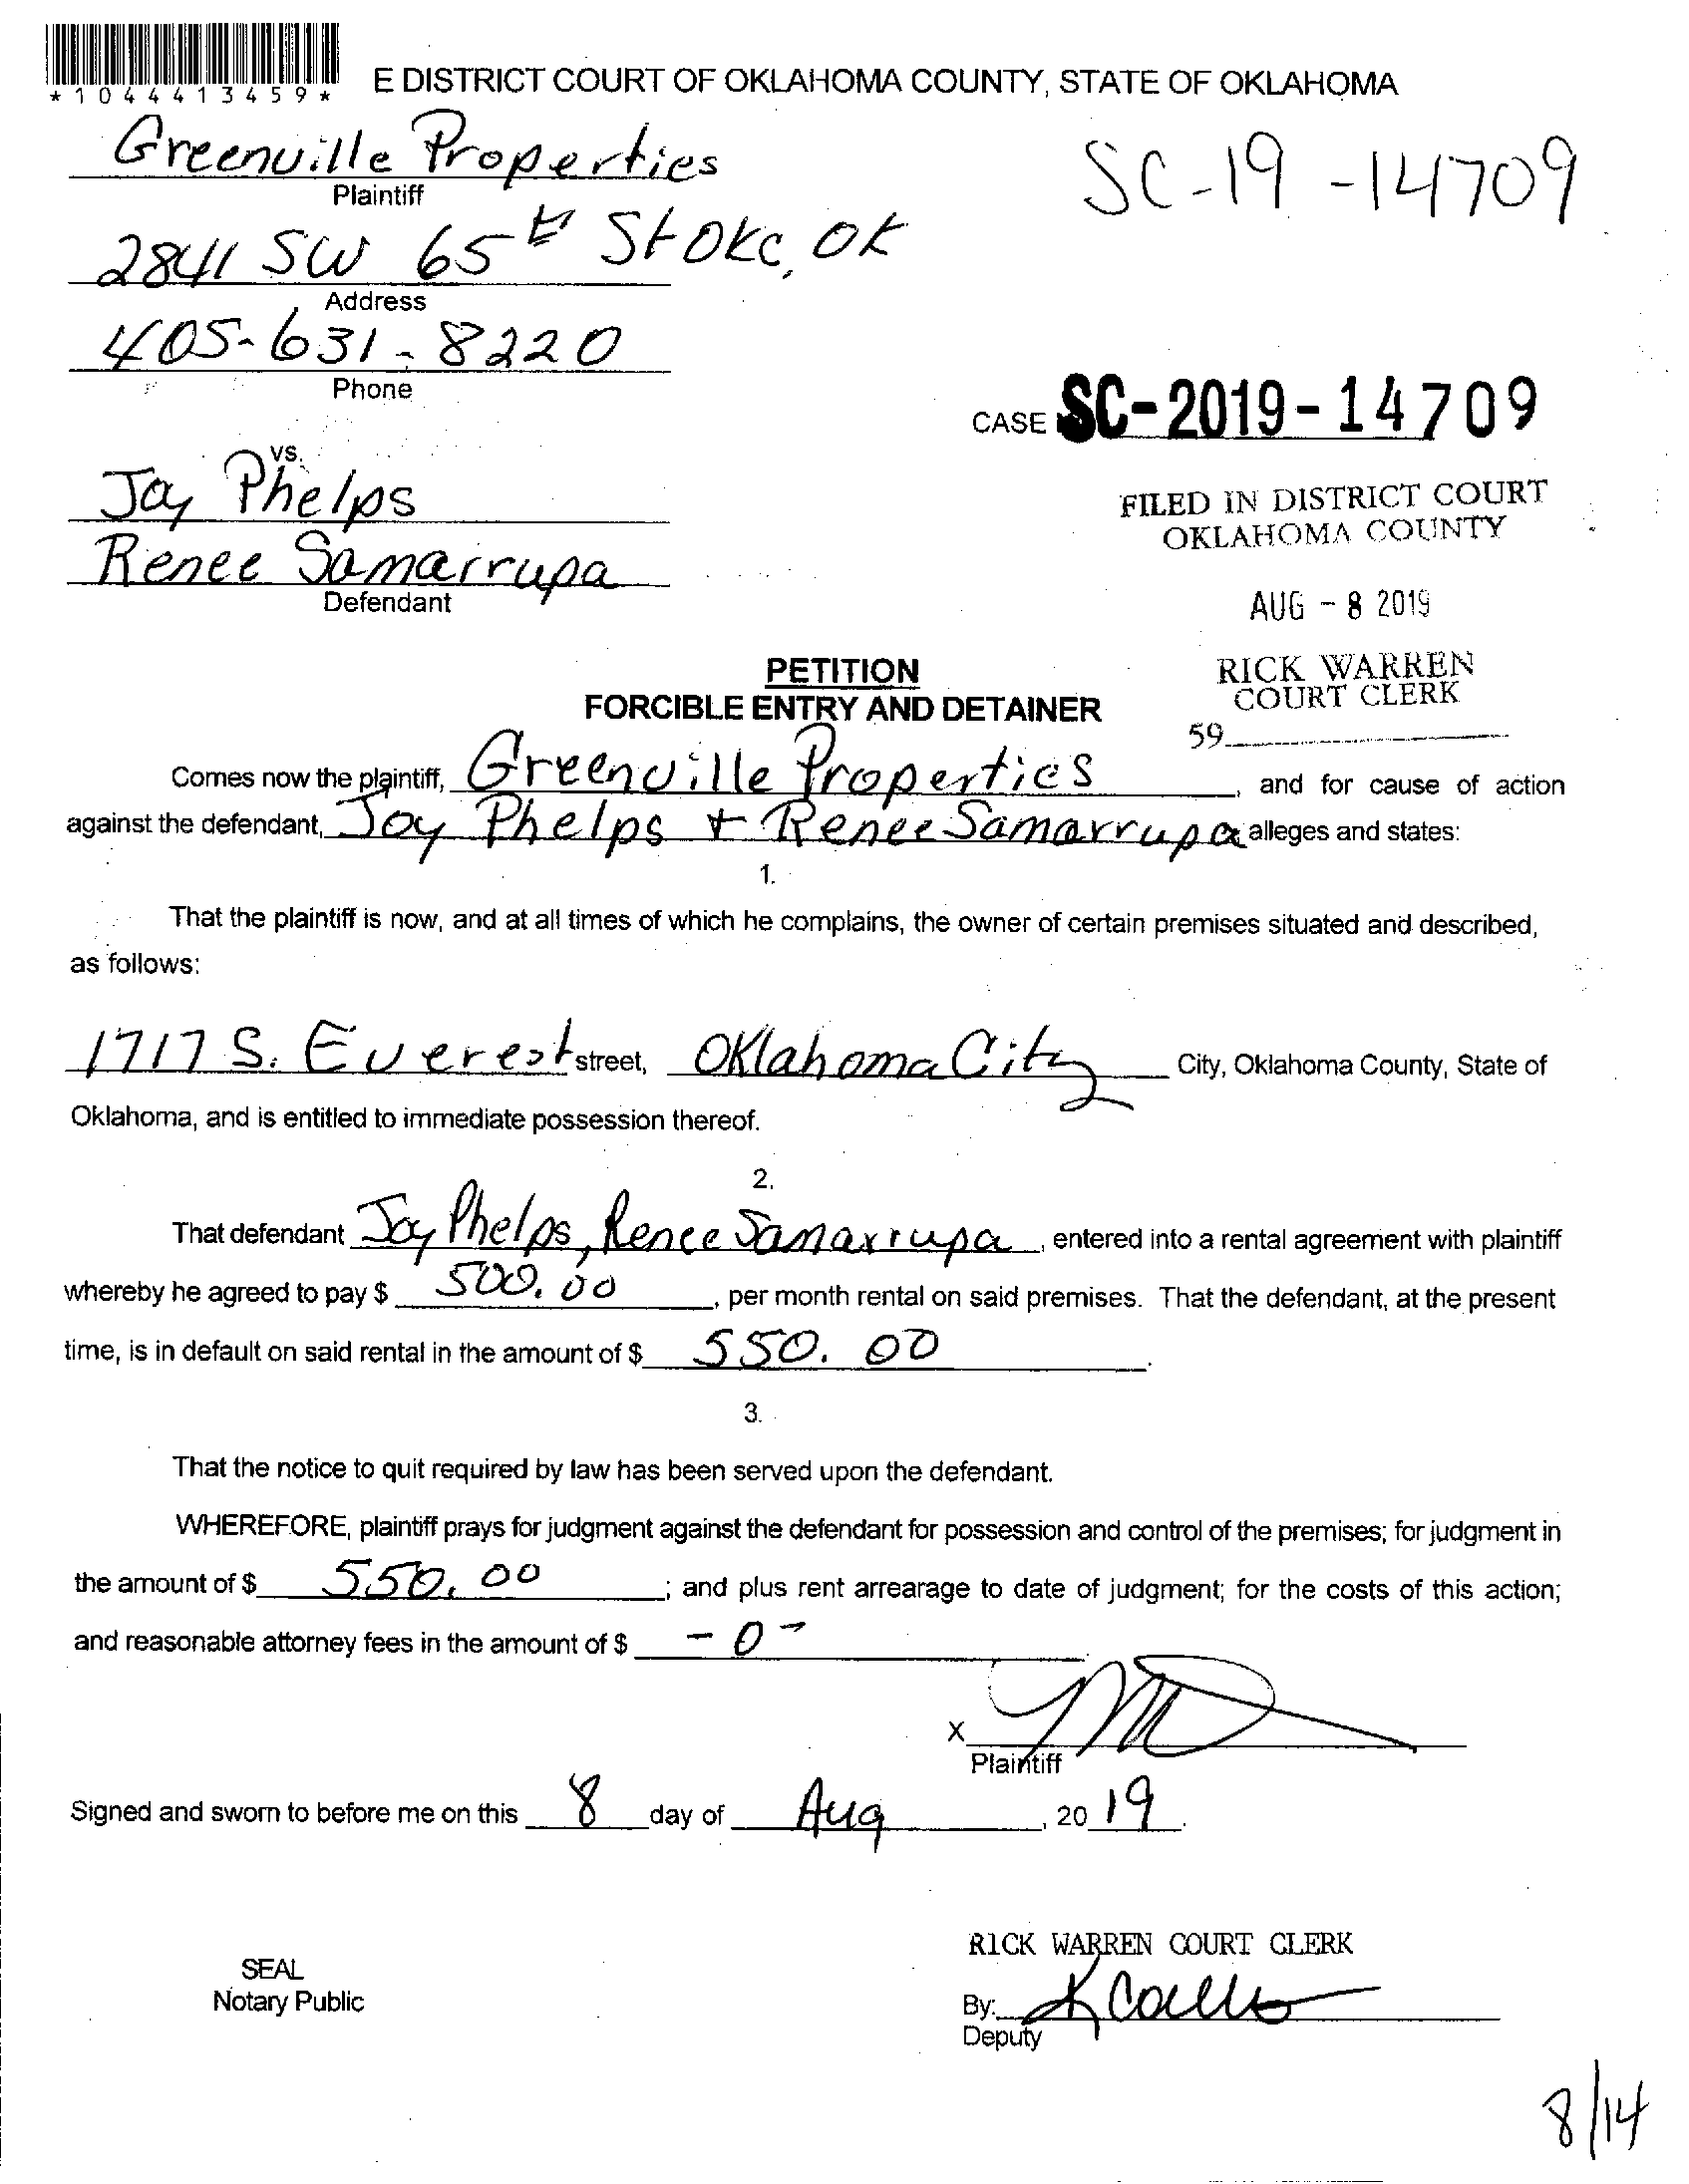 *1044413459*
E DISTRICT COURT OF OKLAHOMA COUNTY, STATE OF OKLAHOMA
Greenville Properties
Plaintiff
SC-19-14709
2841 SW 65th St OKC, OK
Address
405-631-8220
Phone
CASE SC-2019-14709
vs.
Joy Phelps
Renee Samarrupa
Defendant
FILED IN DISTRICT COURT
OKLAHOMA COUNTY
AUG - 8 2019
RICK WARREN
COURT CLERK
59
PETITION
FORCIBLE ENTRY AND DETAINER
Comes now the plaintiff, Greenville Properties, and for cause of action
against the defendant, Joy Phelps + Renee Samarrupa alleges and states:
1.
That the plaintiff is now, and at all times of which he complains, the owner of certain premises situated and described,
as follows:
1717 S. Everest street, Oklahoma City City, Oklahoma County, State of
Oklahoma, and is entitled to immediate possession thereof.
2.
That defendant Joy Phelps, Renee Samarrupa, entered into a rental agreement with plaintiff
whereby he agreed to pay $ 500.00, per month rental on said premises. That the defendant, at the present
time, is in default on said rental in the amount of $ 550.00.
3.
That the notice to quit required by law has been served upon the defendant.
WHEREFORE, plaintiff prays for judgment against the defendant for possession and control of the premises; for judgment in
the amount of $ 550.00; and plus rent arrearage to date of judgment; for the costs of this action;
and reasonable attorney fees in the amount of $ -0-
X
Plaintiff
Signed and sworn to before me on this 8 day of Aug, 2019.
SEAL
Notary Public
RICK WARREN COURT CLERK
By:
Deputy
8/14